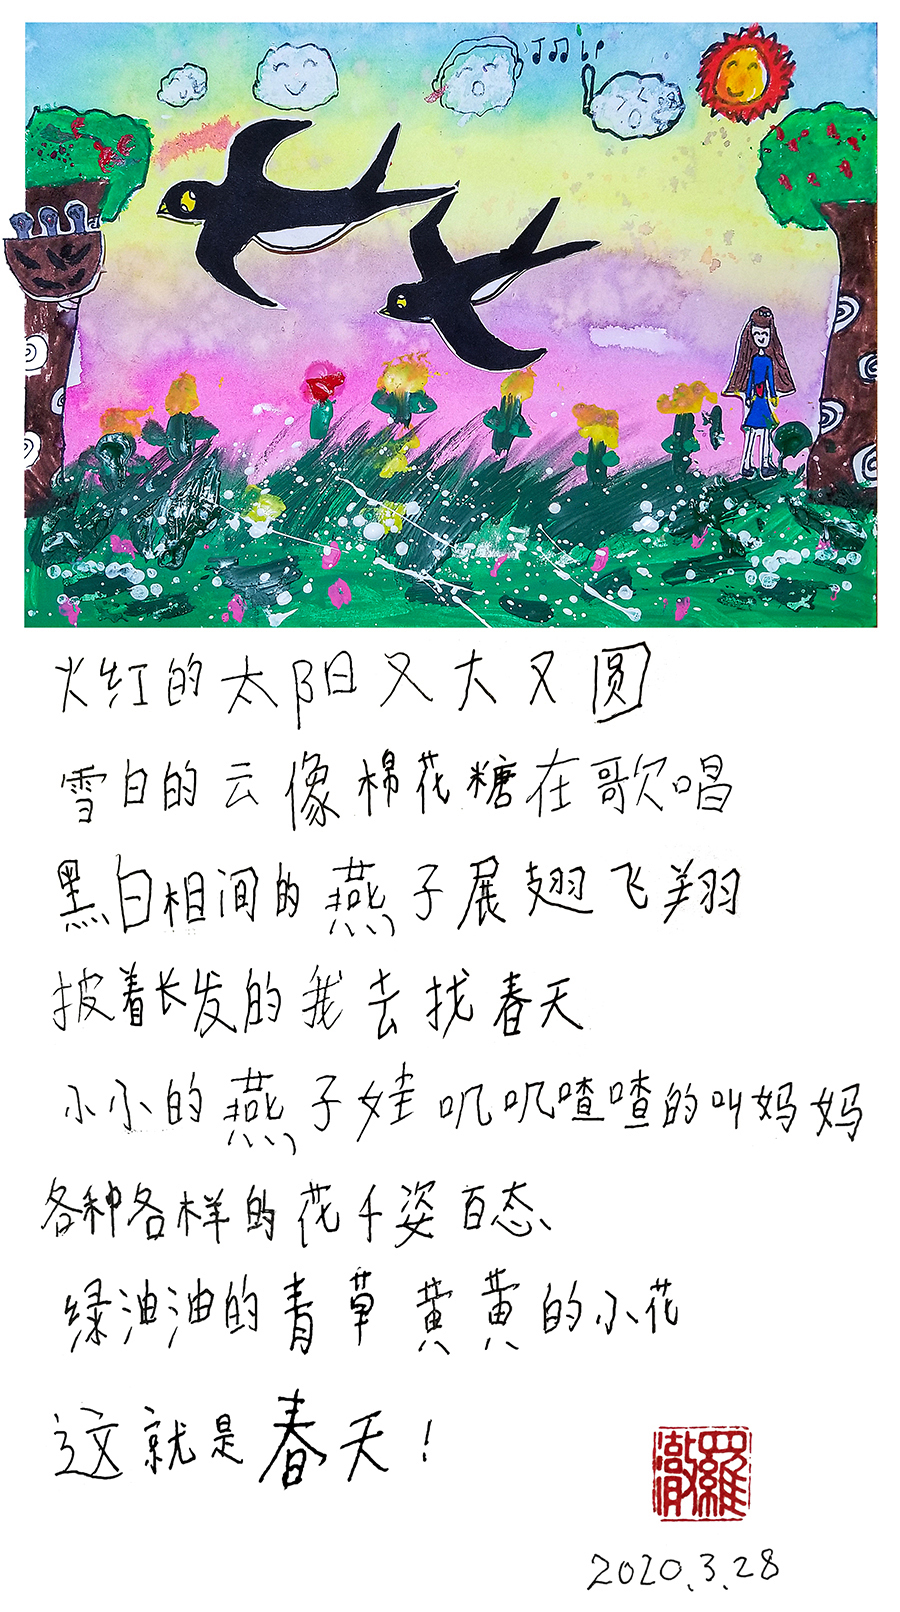 火红的太阳又大又圆
雪白的云像棉花糖在歌唱
黑白相间的燕子展翅飞翔
披着长发的我去找春天
小小的燕子娃叽叽喳喳的叫妈妈
各种各样的花千姿百态、
绿油油的青草黄黄的小花
这就是春天！
羅澈
2020.3.28